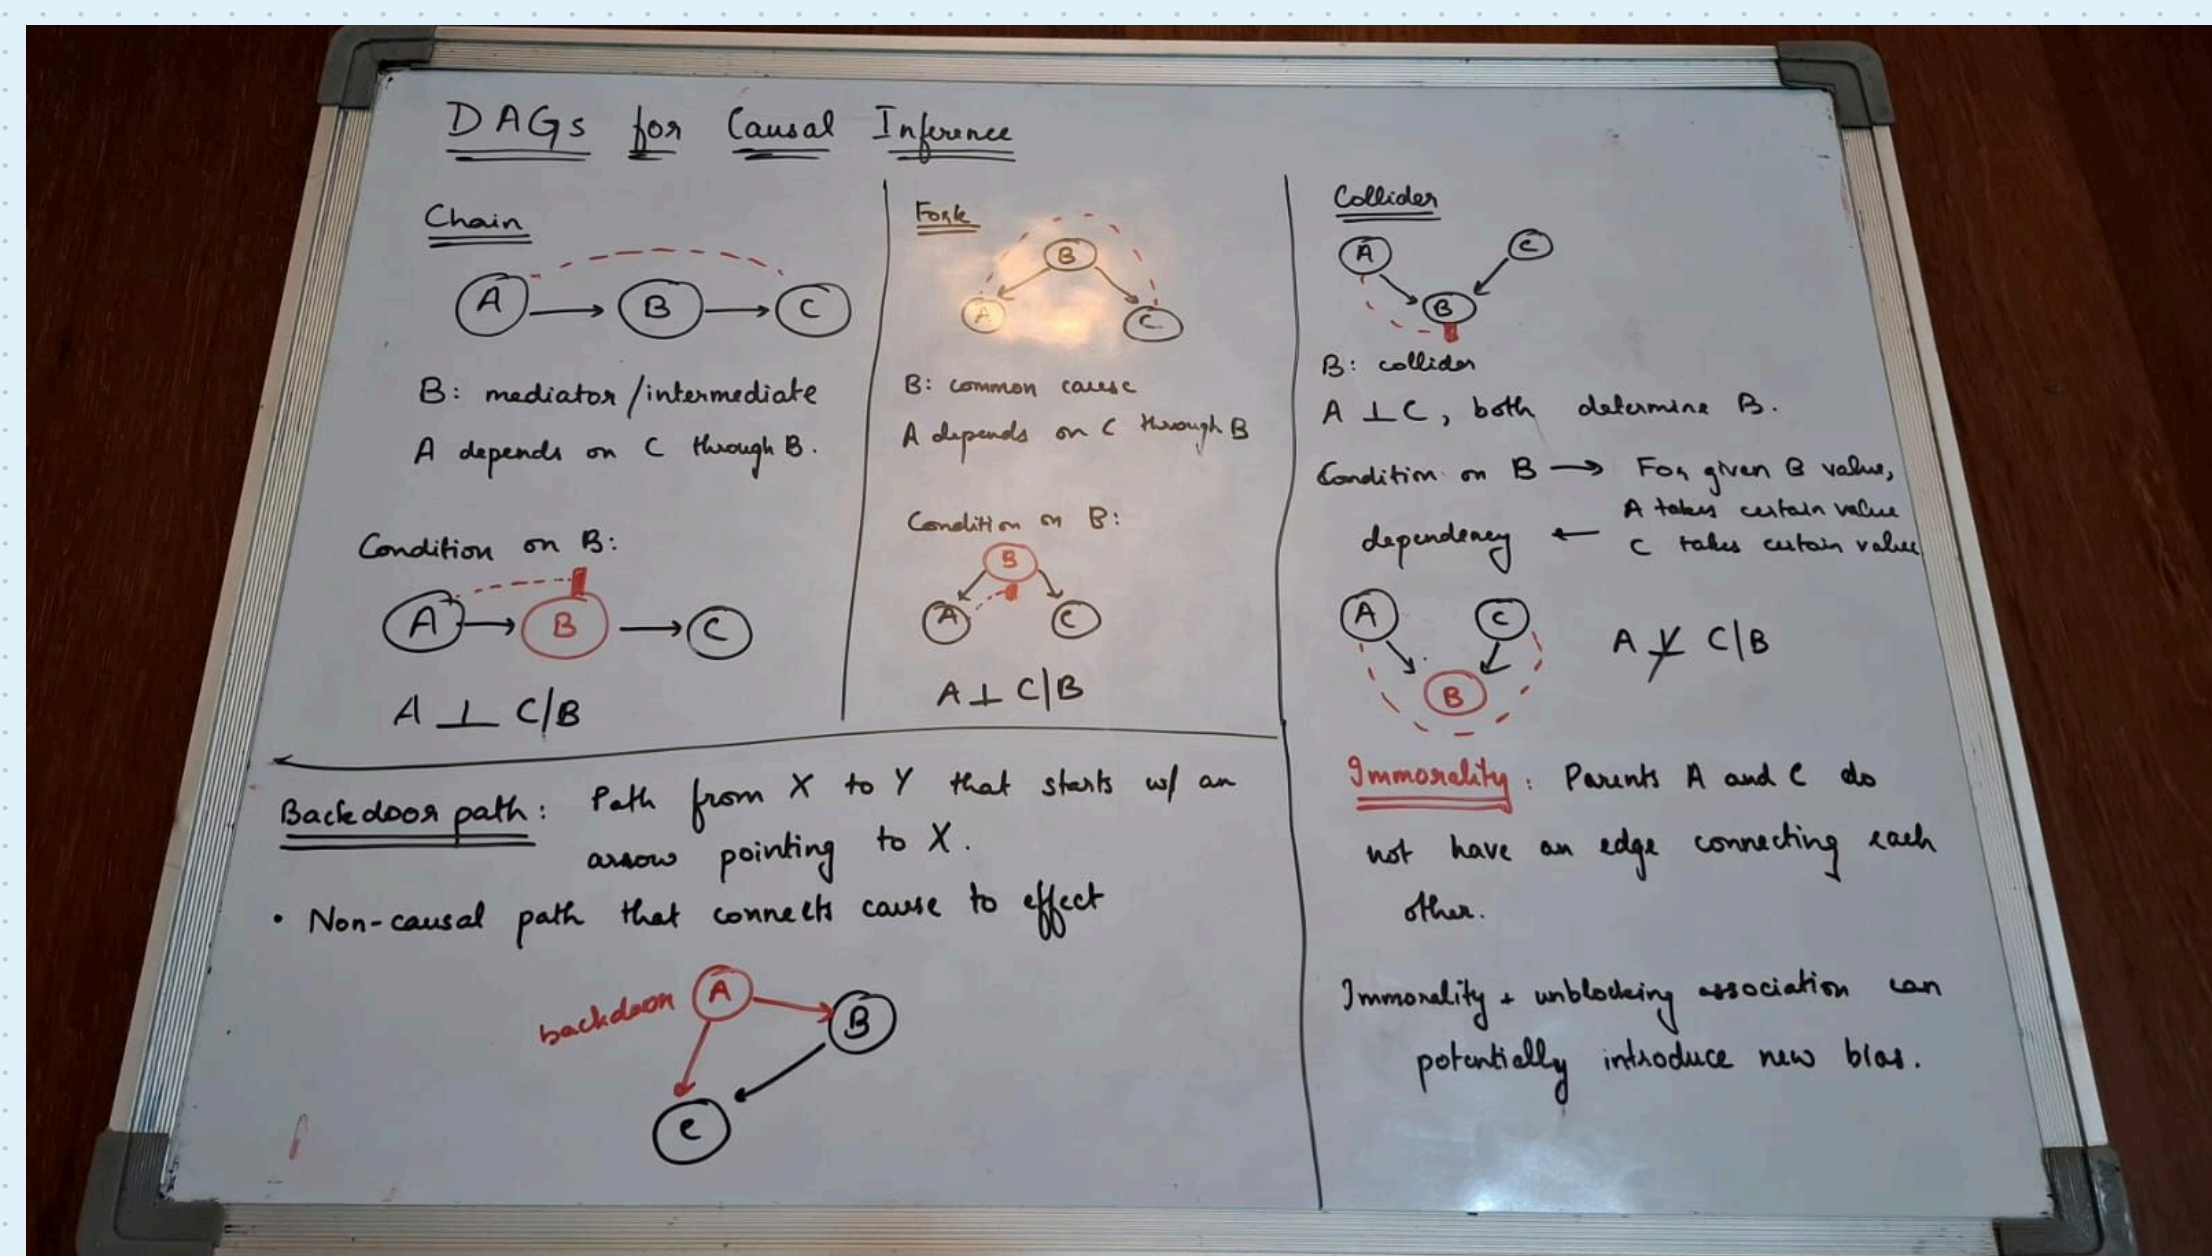 DAGs for Causal Inference
Chain
A
B
C
B: mediator/intermediate
A depends on C through B.
Condition on B:
A
B
C
A ⊥ C/B
Fork
B
A
C
B: common cause
A depends on C through B
Condition on B:
B
A
C
A ⊥ C/B
Collider
A
C
B
B: collider
A ⊥ C, both determine B.
Condition on B → For given B value,
A takes certain value
dependency ← C takes certain value
A
C
B
A ⊥̸ C/B
Immorality: Parents A and C do
not have an edge connecting each
other.
Immorality + unblocking association can
potentially introduce new bias.
Backdoor path: Path from X to Y that starts w/ an
arrow pointing to X.
• Non-causal path that connects cause to effect
backdoor
A
B
C